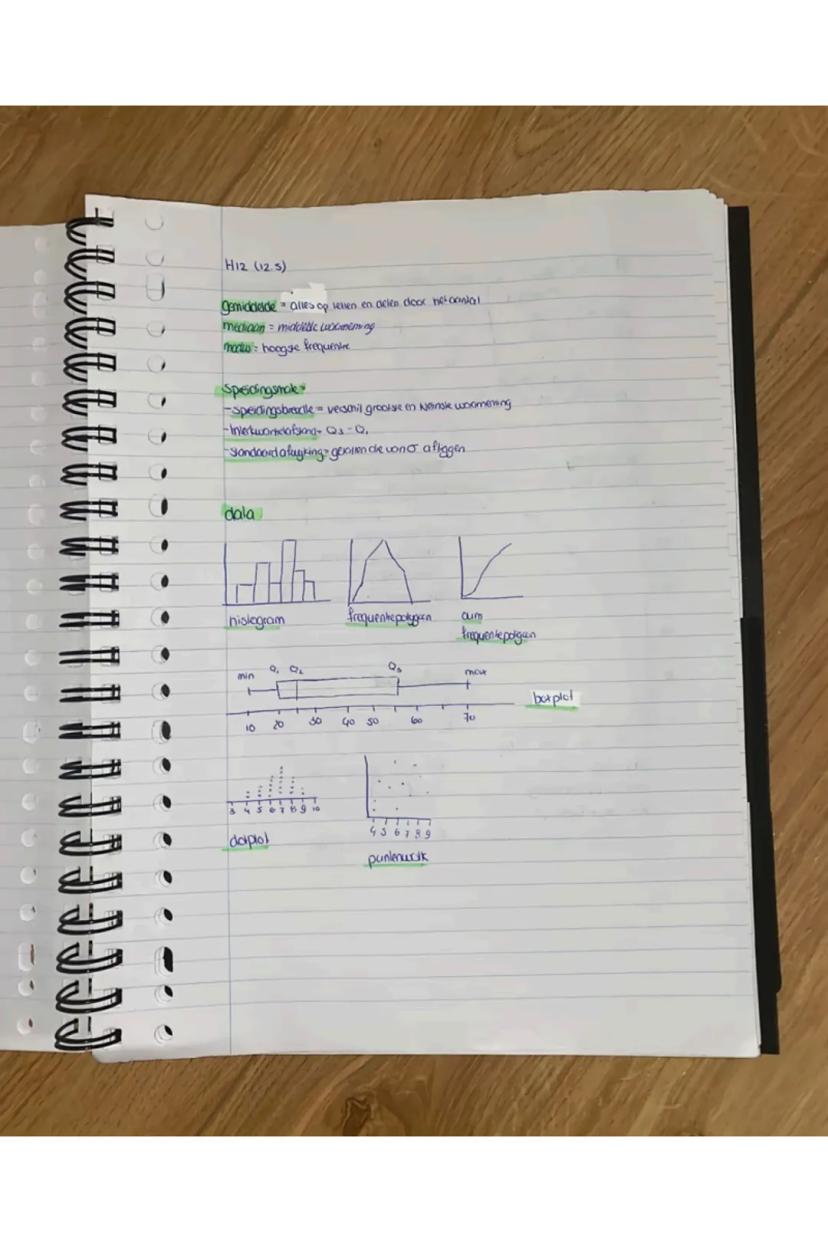 H12 (12.5)
gemiddelde = alles op tellen en delen door het aantal
mediaan = middelste waarneming
modus = hoogste frequentie
Spreidingsmate =
- Spreidingsbreedte = verschil grootste en kleinste waarneming
- Interkwartielafstand = Q3 - Q1
- Standaardafwijking = getallen die van σ afliggen
data
histogram frequentiepolygoon cum
frequentiepolygoon
min Q1 Q2 Q3 max
boxplot
10 20 30 40 50 60 70
3 4 5 6 7 8 9 10
4 5 6 7 8 9
dotplot
puntenwolk